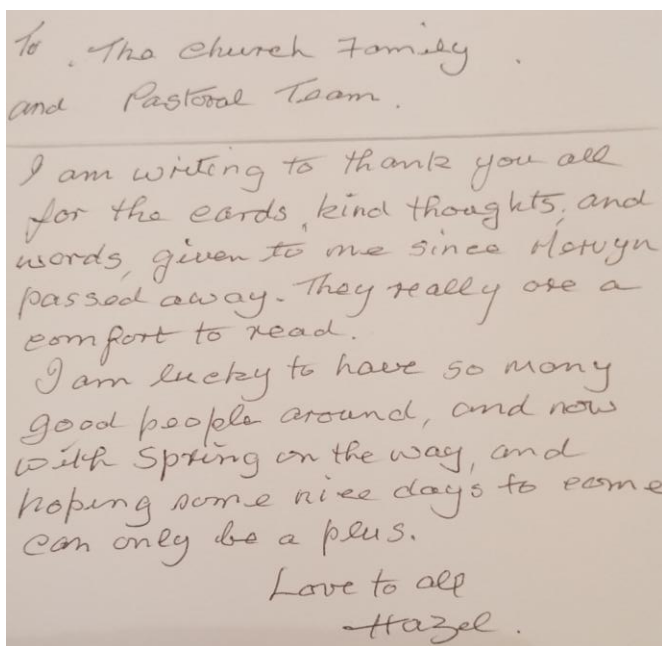 To . The Church Family .
and Pastoral Team .
I am writing to thank you all
for the cards, kind thoughts, and
words, given to me since Mervyn
passed away. They really are a
comfort to read.
I am lucky to have so many
good people around, and now
with Spring on the way, and
hoping some nice days to come
can only be a plus.
Love to all
Hazel .